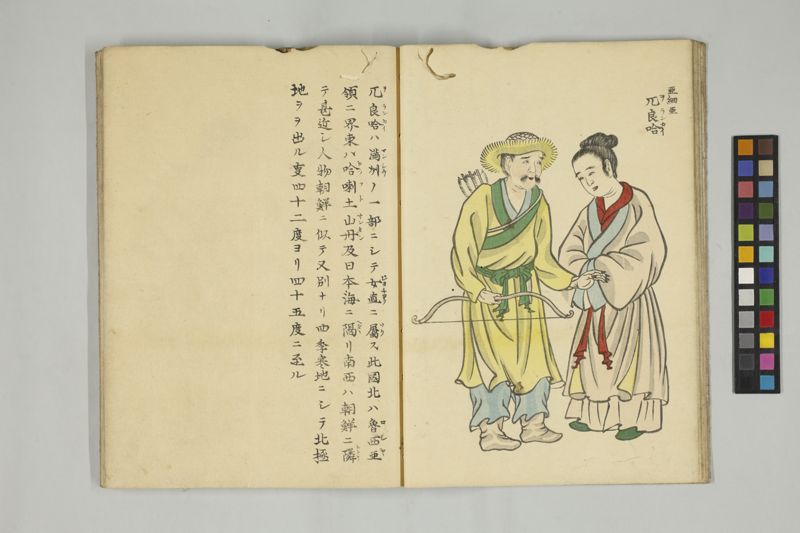 亜細亜
兀良哈
ヲランカイ
兀良哈ハ満州ノ一部ニシテ女直ニ属ス此國北ハ魯西亜
領ニ界東ハ哈喇土山丹及日本海ニ隔リ南西ハ朝鮮ニ隣
テ甚近シ人物朝鮮ニ似テ又別ナリ四季寒地ニシテ北極
地ヲ出ル事四十二度ヨリ四十五度ニ至ル